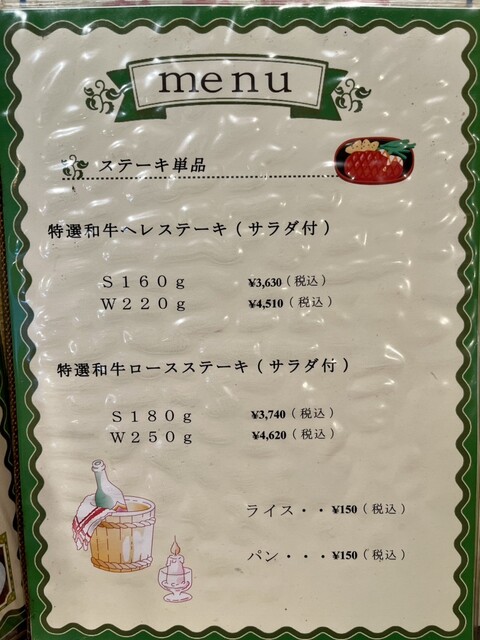 menu
ステーキ単品
特選和牛ヘレステーキ(サラダ付)
S160g ¥3,630(税込)
W220g ¥4,510(税込)
特選和牛ロースステーキ(サラダ付)
S180g ¥3,740(税込)
W250g ¥4,620(税込)
ライス・・¥150(税込)
パン・・・¥150(税込)